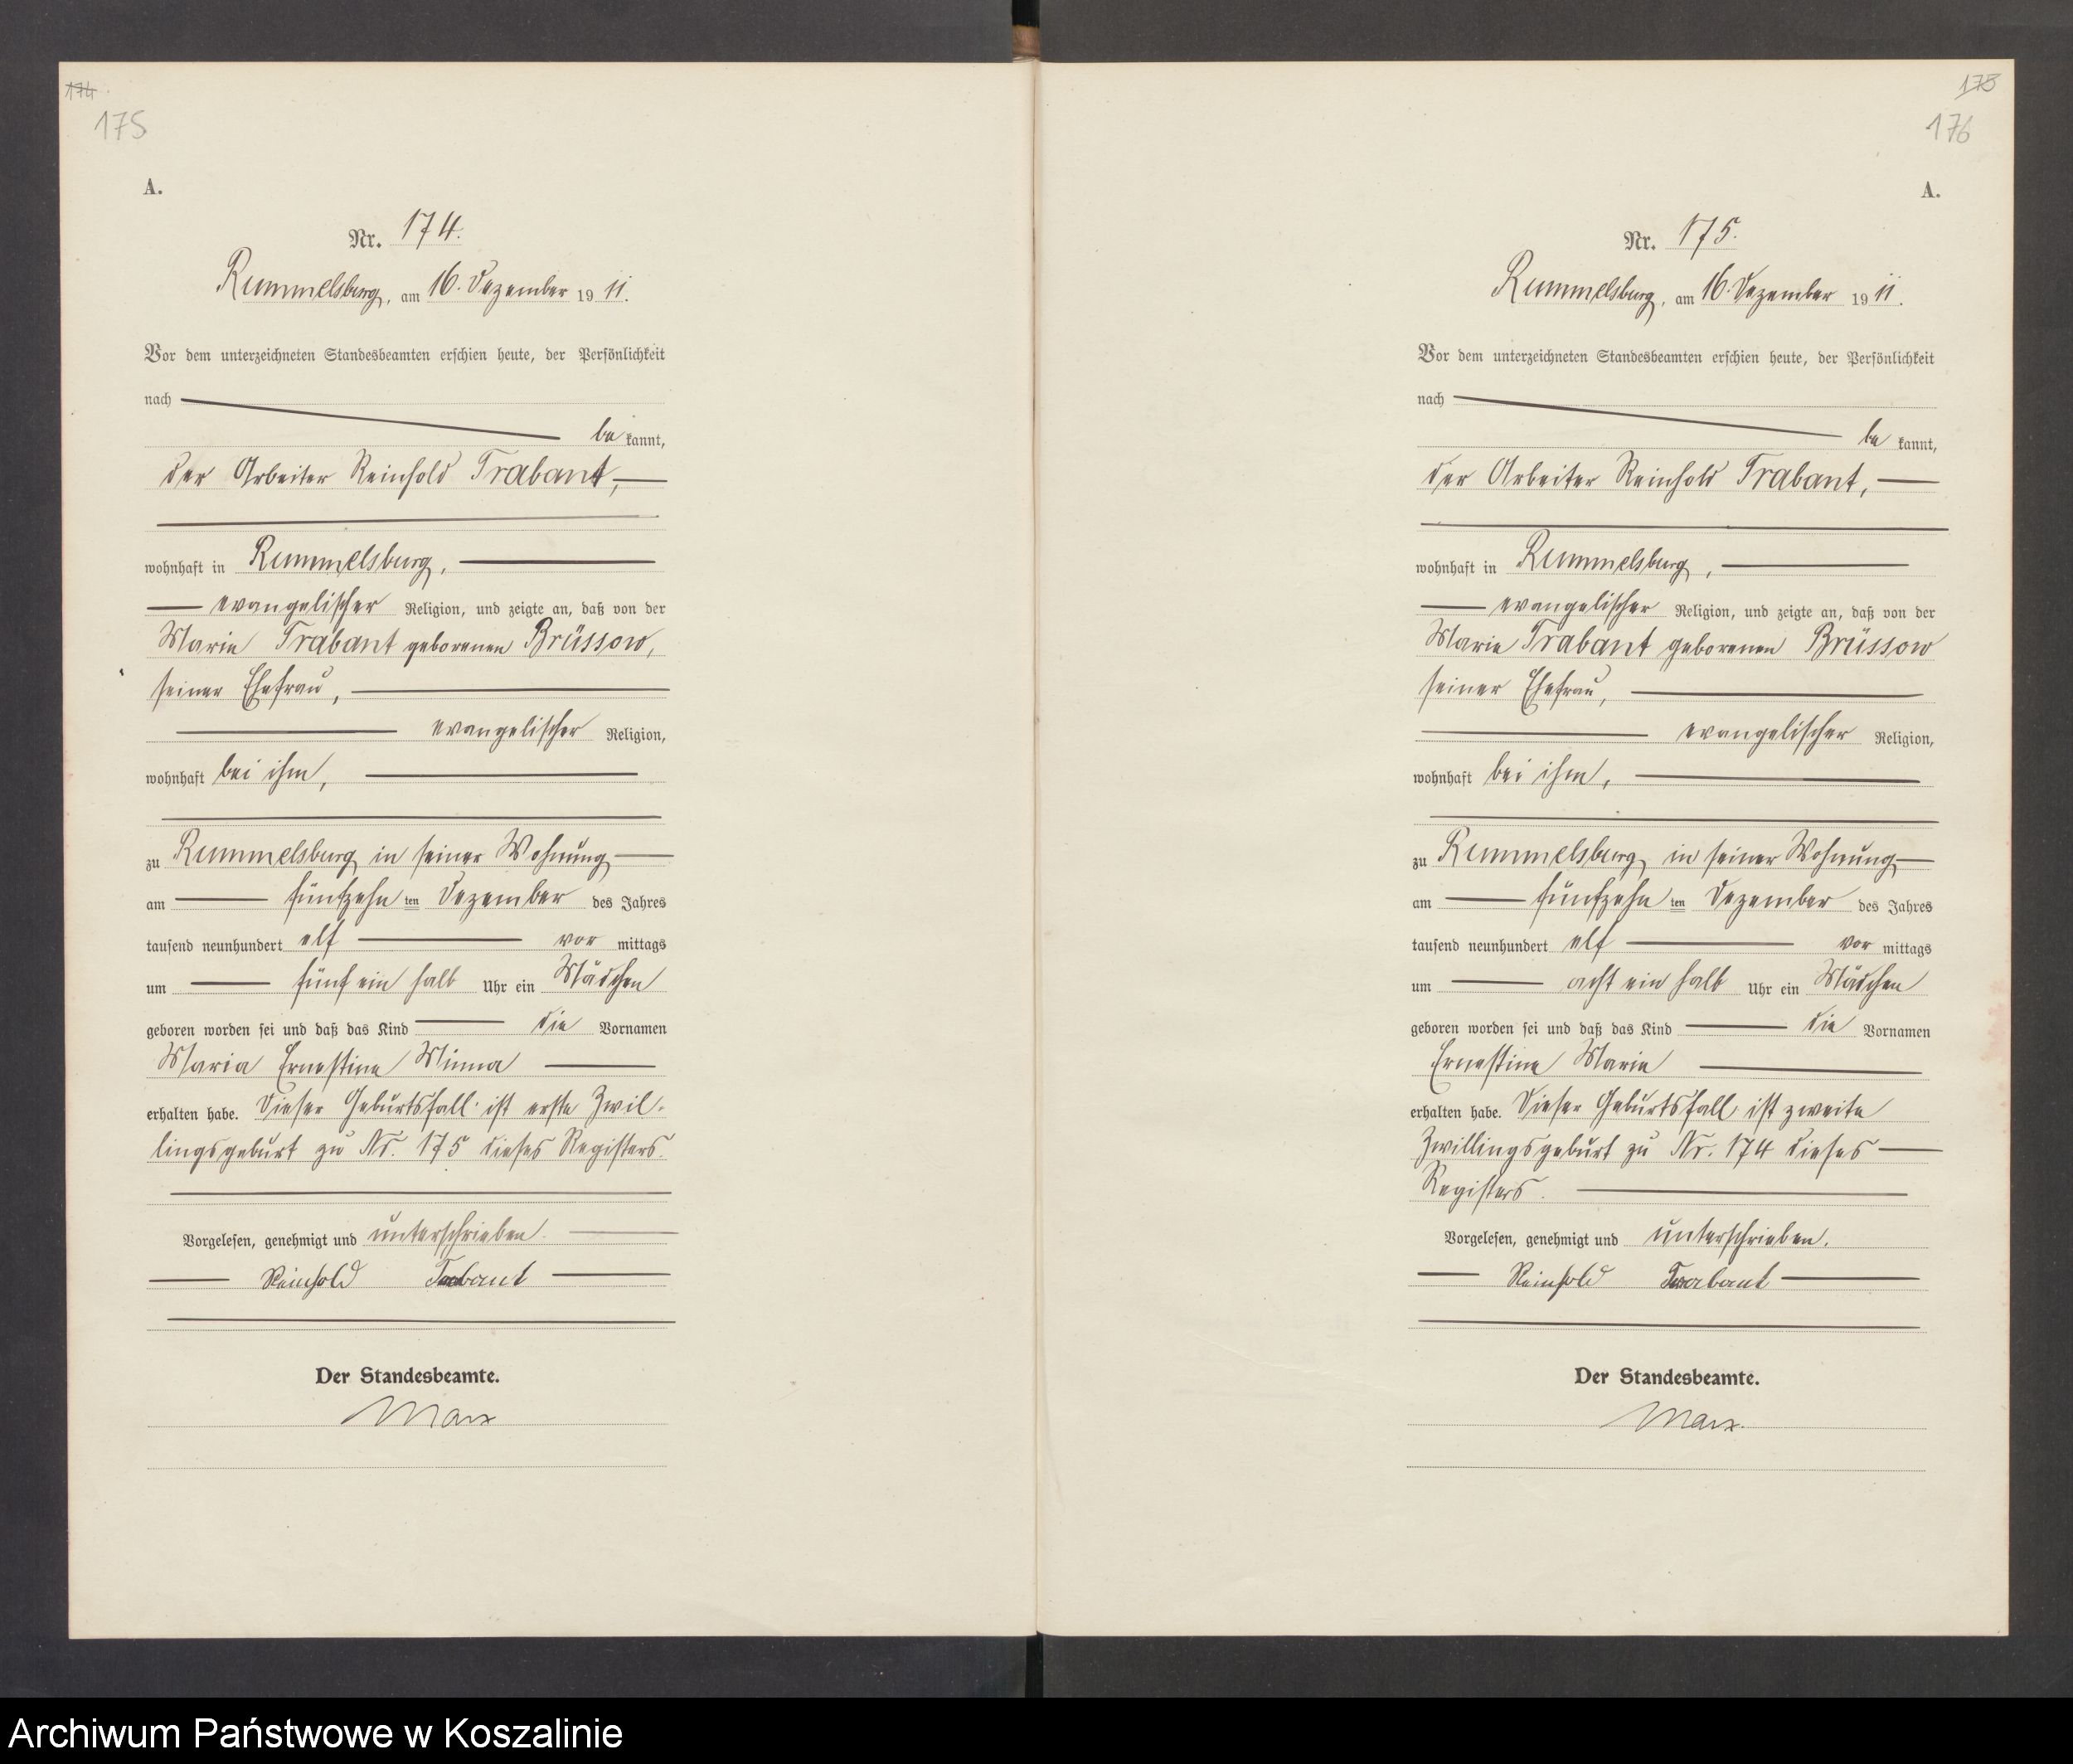 174
175
A.
Nr. 174.
Rummelsburg, am 16. Dezember 1911.
Vor dem unterzeichneten Standesbeamten erschien heute, der Persönlichkeit
nach
be kannt,
der Arbeiter Reinhold Trabant,
wohnhaft in Rummelsburg,
evangelischer Religion, und zeigte an, daß von der
Marie Trabant geborenen Brüssow,
seiner Ehefrau,
evangelischer Religion,
wohnhaft bei ihm,
zu Rummelsburg in seiner Wohnung
am fünfzehn ten Dezember des Jahres
tausend neunhundert elf vor mittags
um fünf ein halb Uhr ein Mädchen
geboren worden sei und daß das Kind die Vornamen
Maria Ernestine Minna
erhalten habe. Dieser Geburtsfall ist erste Zwil-
lingsgeburt zu Nr. 175 dieses Registers.
Vorgelesen, genehmigt und unterschrieben.
Reinhold Trabant
Der Standesbeamte.
Marx
175
176
A.
Nr. 175.
Rummelsburg, am 16. Dezember 1911.
Vor dem unterzeichneten Standesbeamten erschien heute, der Persönlichkeit
nach
be kannt,
der Arbeiter Reinhold Trabant,
wohnhaft in Rummelsburg,
evangelischer Religion, und zeigte an, daß von der
Marie Trabant geborenen Brüssow
seiner Ehefrau,
evangelischer Religion,
wohnhaft bei ihm,
zu Rummelsburg in seiner Wohnung
am fünfzehn ten Dezember des Jahres
tausend neunhundert elf vor mittags
um acht ein halb Uhr ein Mädchen
geboren worden sei und daß das Kind die Vornamen
Ernestine Marie
erhalten habe. Dieser Geburtsfall ist zweite
Zwillingsgeburt zu Nr. 174 dieses
Registers.
Vorgelesen, genehmigt und unterschrieben.
Reinhold Trabant
Der Standesbeamte.
Marx.
Archiwum Państwowe w Koszalinie